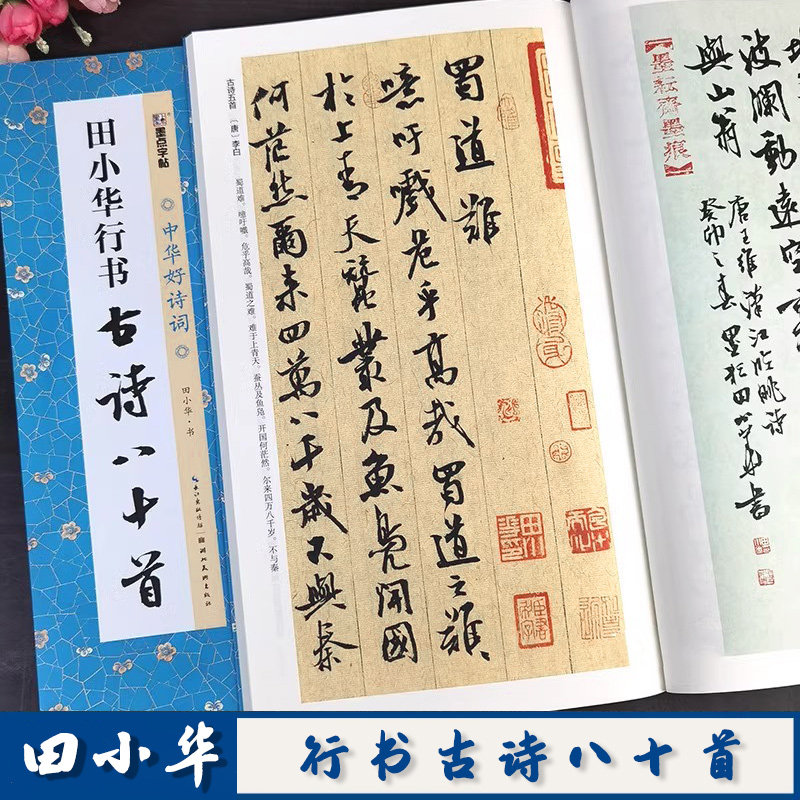 墨点字帖
田小华行书
古诗八十首
中华好诗词
田小华·书
长江出版传媒
湖北美术出版社
蜀道難
噫吁戲危乎高哉蜀道之難
於上青天蠶叢及魚鳧開國
何茫然爾来四萬八千歲不與秦
古诗五首 〔唐〕李白
蜀道难。噫吁嚱。危乎高哉。蜀道之难。难于上青天。蚕丛及鱼凫。开国何茫然。尔来四万八千岁。不与秦
波瀾動遠空
與山翁
唐王維漢江臨眺詩
癸卯之春墨耘田小華書
【墨耘齋墨痕】
田小华
行书古诗八十首